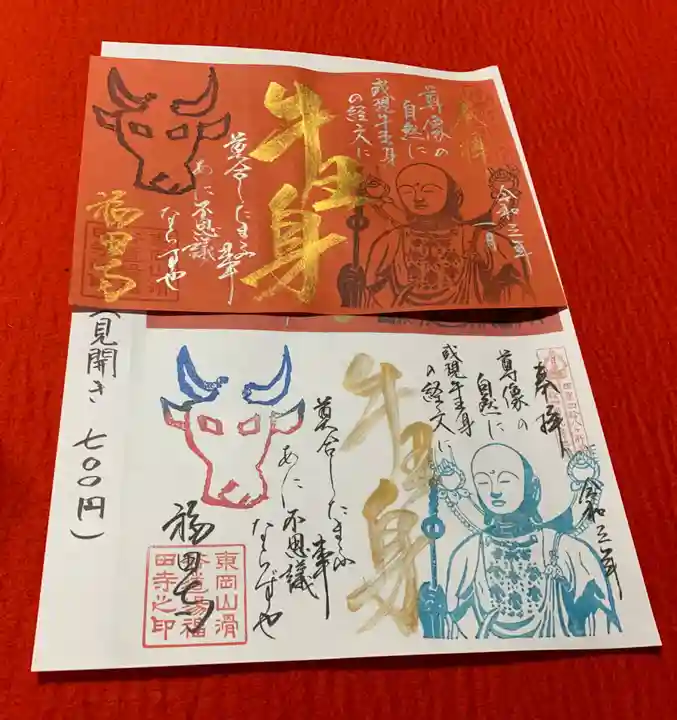 奉拝
令和三年
一月
尊像の
自然に
或現牛王身
の経文に
牛王身
冥合したまふ事
あに不思議
ならずや
福田寺
見開き 七〇〇円)
奉拝
令和三年
尊像の
自然に
或現牛王身
の経文に
牛王身
冥合したまふ事
あに不思議
ならずや
福田寺
東岡山滑
田寺之印